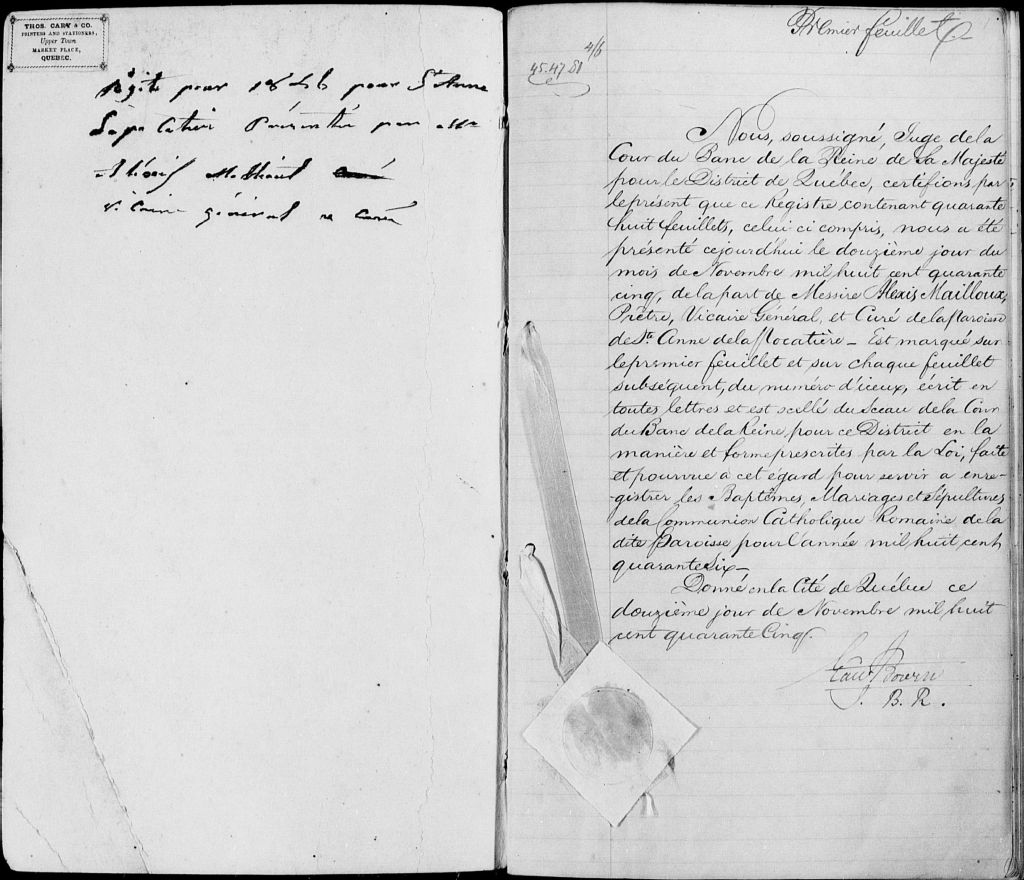 THOS. CARY & CO.
PRINTERS AND STATIONERS,
Upper Town
MARKET PLACE,
QUEBEC.
pour 1846 pour Ste Anne
Présentée par Mr
général et Curé
Premier feuillet
4/6
45.47.50
Nous, soussigné, Juge de la
Cour du Banc de la Reine de Sa Majesté
pour le District de Québec, certifions par
le présent que ce Registre contenant quarante
huit feuillets, celui ci compris, nous a été
présenté cejourd'hui le douzième jour du
mois de Novembre mil huit cent quarante
cinq, de la part de Messire Alexis Mailloux,
Prêtre, Vicaire Général, et Curé de la Paroisse
de Ste Anne de la Pocatière – Est marqué sur
le premier feuillet et sur chaque feuillet
subséquent, du numéro d'iceux, écrit en
toutes lettres et est scellé du Sceau de la Cour
du Banc de la Reine pour ce District en la
manière et forme prescrites par la Loi, faite
et pourvue à cet égard pour servir a enre-
gistrer les Baptêmes, Mariages et Sépultures
de la Communion Catholique Romaine de la
dite Paroisse pour l'année mil huit cent
quarante Six –
Donné en la Cité de Québec ce
douzième jour de Novembre mil huit
cent quarante Cinq.
Edw Bowen
J. B. R.